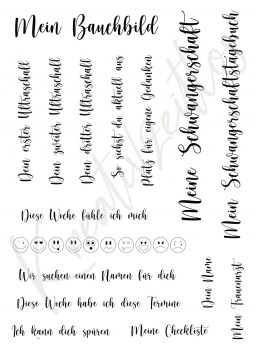 Mein Bauchbild
Dein erster Ultraschall
Dein zweiter Ultraschall
Dein dritter Ultraschall
So siehst du aktuell aus
Platz für eigene Gedanken
Meine Schwangerschaft
Mein Schwangerschaftstagebuch
Diese Woche fühle ich mich
Wir suchen einen Namen für dich
Dein Name
Mein Frauenarzt
Diese Woche habe ich diese Termine
Ich kann dich spüren
Meine Checkliste
Kreativzeitlos